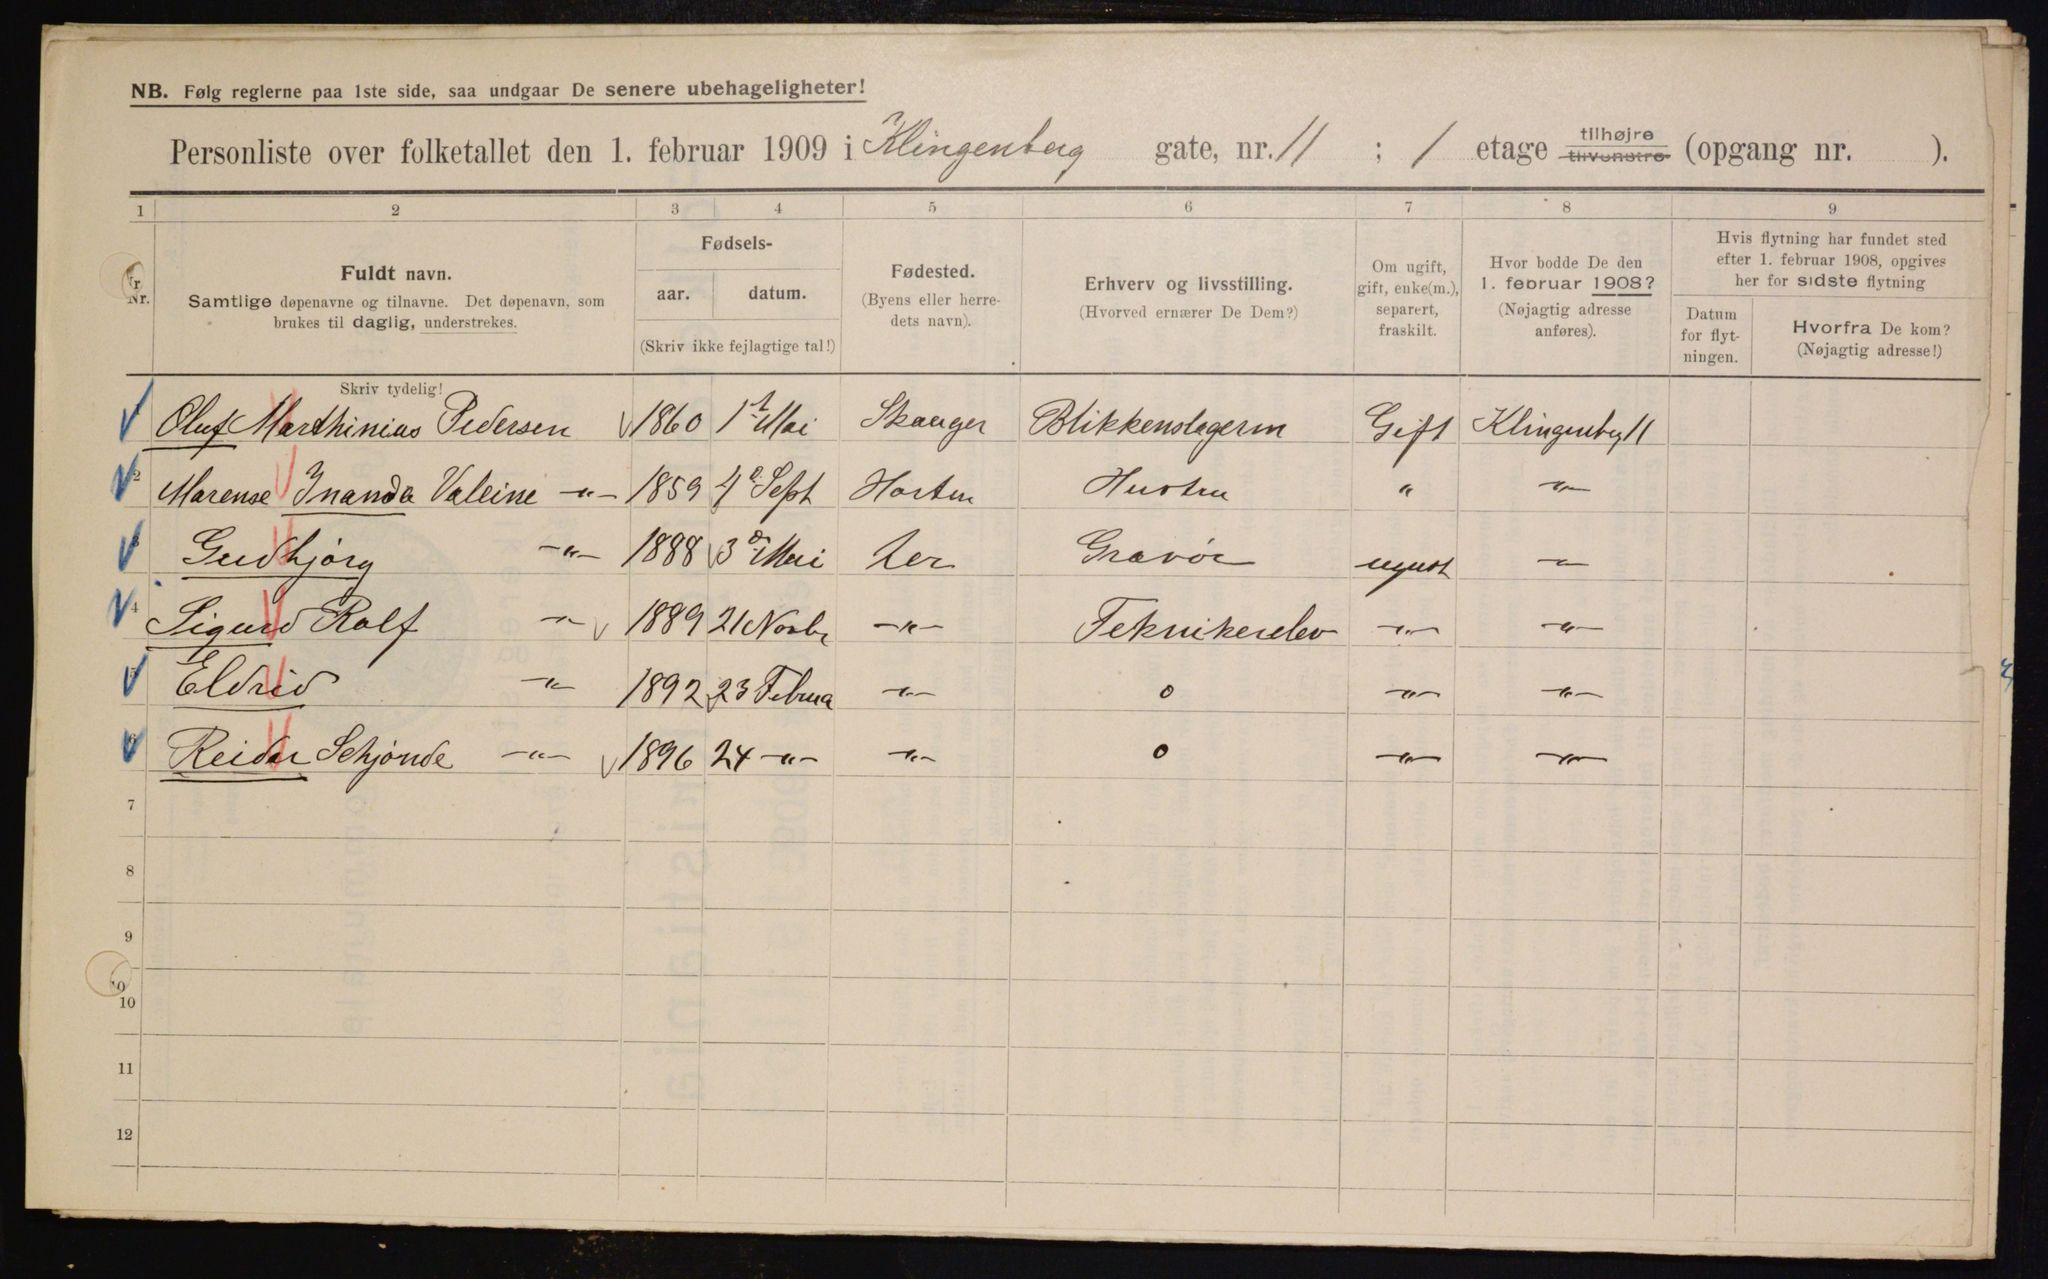 NB. Følg reglerne paa 1ste side, saa undgaar De senere ubehageligheter!
Personliste over folketallet den 1. februar 1909 i Klingenberg gate, nr. 11 ; 1 etage tilhøjre tilvenstre (opgang nr. ).
1 2 3 4 5 6 7 8 9
Nr.
Fuldt navn.
Samtlige døpenavne og tilnavne. Det døpenavn, som
brukes til daglig, understrekes.
Fødsels-
aar. datum.
(Skriv ikke fejlagtige tal!)
Fødested.
(Byens eller herre-
dets navn).
Erhverv og livsstilling.
(Hvorved ernærer De Dem?)
Om ugift,
gift, enke(m.),
separert,
fraskilt.
Hvor bodde De den
1. februar 1908?
(Nøjagtig adresse
anføres).
Hvis flytning har fundet sted
efter 1. februar 1908, opgives
her for sidste flytning
Datum
for flyt-
ningen.
Hvorfra De kom?
(Nøjagtig adresse!)
Skriv tydelig!
1 Oluf Marthinius Pedersen 1860 1 Mai Skauger Blikkenslagerm Gift Klingenbg 11
2 Marense Inanda Valeine -"- 1859 4 Sept Horten Hustru " -"-
3 Gudbjörg -"- 1888 3 Mai her Gravør ugift -"-
4 Sigurd Rolf -"- 1889 21 Novbr -"- Teknikerelev -"- -"-
5 Eldrid -"- 1892 23 Februa -"- 0 -"- -"-
6 Reidar Schjønde -"- 1896 24 -"- -"- 0 -"- -"-
7
8
9
10
10
11
12